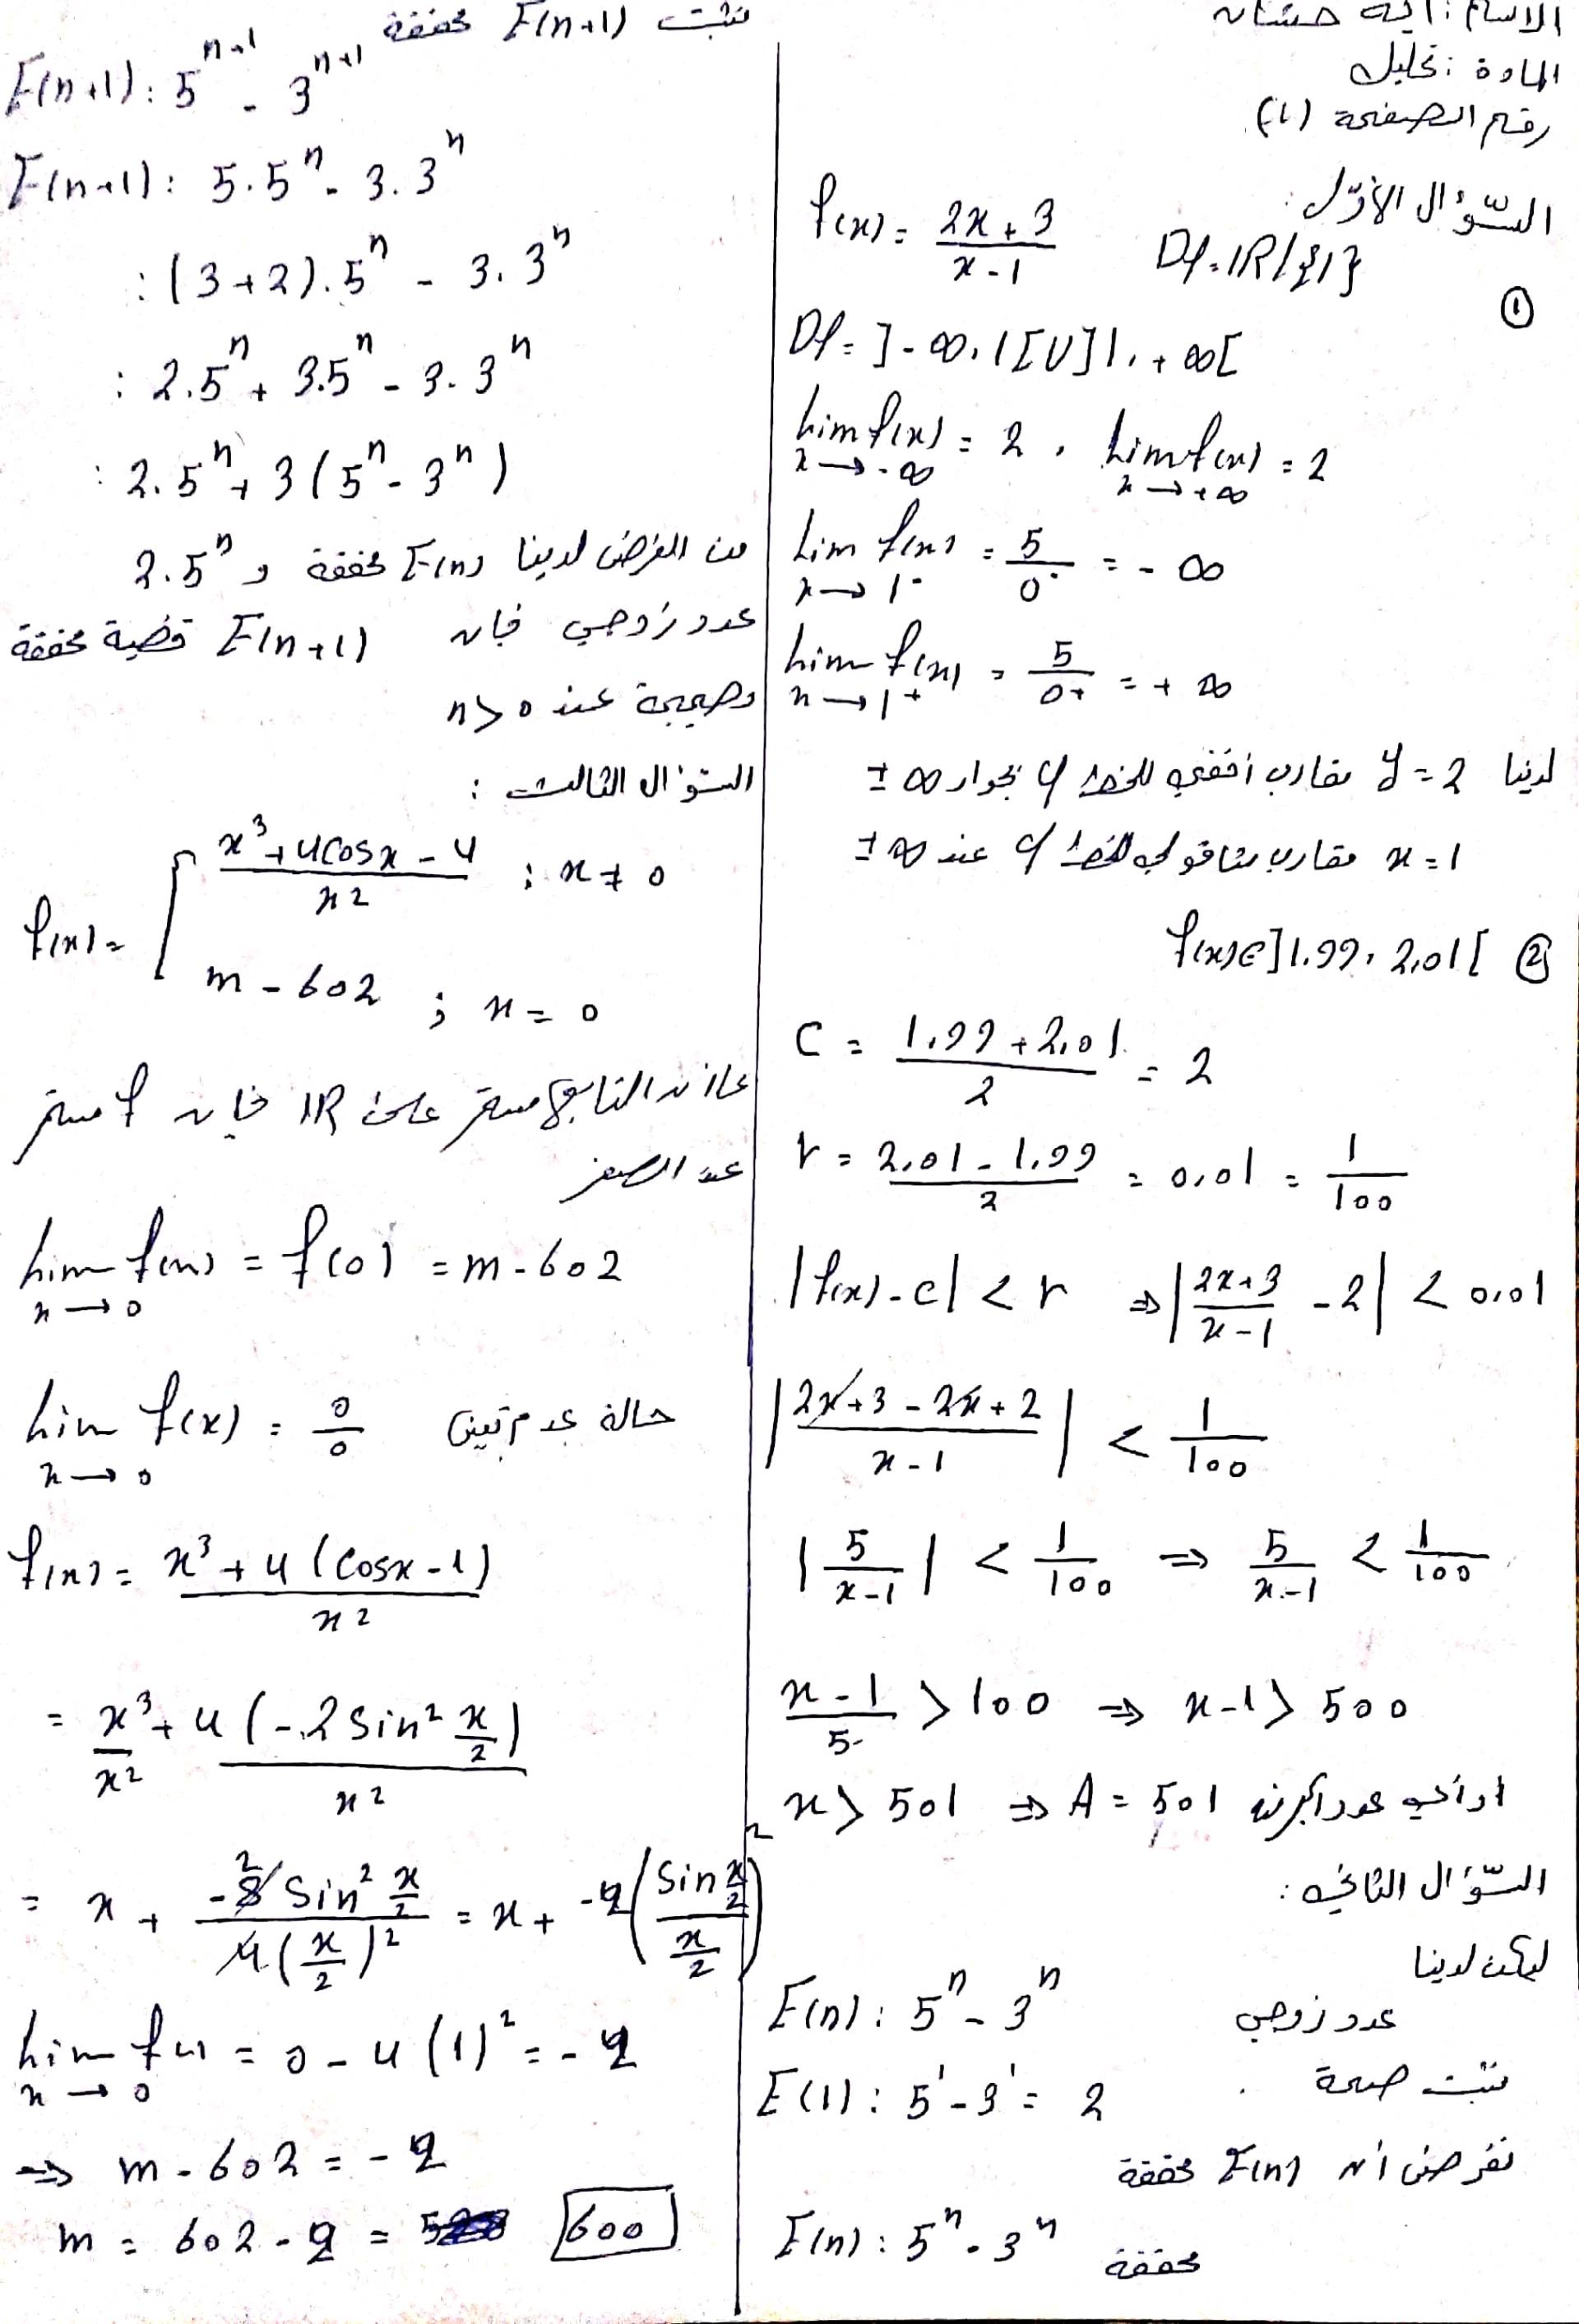 الاسم : آية حسان
المادة : تحليل
رقم الصفحة (1)
السّؤال الأوّل :
f(x) = \frac{2x+3}{x-1} Df = IR/{1}
①
Df = ]-∞, 1[U]1, +∞[
lim_{x→-∞} f(x) = 2 , lim_{x→+∞} f(x) = 2
lim_{x→1^-} f(x) = \frac{5}{0^-} = -∞
lim_{x→1^+} f(x) = \frac{5}{0^+} = +∞
لدينا y = 2 مقارب أفقي للخط f بجوار ±∞
x = 1 مقارب شاقولي للخط f عند ±∞
f(x) ∈ ]1.99, 2,01[ ②
C = \frac{1,99 + 2,01}{2} = 2
r = \frac{2,01 - 1,99}{2} = 0,01 = \frac{1}{100}
|f(x) - c| < r ⇒ |\frac{2x+3}{x-1} - 2| < 0,01
|\frac{2x+3-2x+2}{x-1}| < \frac{1}{100}
|\frac{5}{x-1}| < \frac{1}{100} ⇒ \frac{5}{x-1} < \frac{1}{100}
\frac{x-1}{5} > 100 ⇒ x-1 > 500
x > 501 ⇒ A = 501 او أي عدد أكبر منه
السّؤال الثاني :
ليكن لدينا
E(n) : 5^n - 3^n عدد زوجي
نثبت صحة
E(1) : 5^1 - 3^1 = 2
نفرض أن E(n) محققة
E(n) : 5^n - 3^n محققة
نثبت E(n+1) محققة
E(n+1) : 5^{n+1} - 3^{n+1}
E(n+1) : 5.5^n - 3.3^n
: (3+2).5^n - 3.3^n
: 2.5^n + 3.5^n - 3.3^n
: 2.5^n + 3(5^n - 3^n)
من الفرض لدينا E(n) محققة و 2.5^n
عدد زوجي فإن E(n+1) قضية محققة
وصحيحة عند n>0
السّؤال الثالث :
f(x) = { \frac{x^3+4cosx-4}{x^2} ; x ≠ 0
m - 602 ; x = 0
بما ان التابع مستمر على IR فإن f مستمر
عند الصفر
lim_{x→0} f(x) = f(0) = m - 602
lim_{x→0} f(x) = \frac{0}{0} حالة عدم تعيين
f(x) = \frac{x^3+4(cosx-1)}{x^2}
= \frac{x^3}{x^2} + \frac{4(-2sin^2 \frac{x}{2})}{x^2}
= x + \frac{-8 sin^2 \frac{x}{2}}{4(\frac{x}{2})^2} = x + -2(\frac{sin \frac{x}{2}}{\frac{x}{2}})^2
lim_{x→0} f(x) = 0 - 4(1)^2 = -2
⇒ m - 602 = -2
m = 602 - 2 = 600